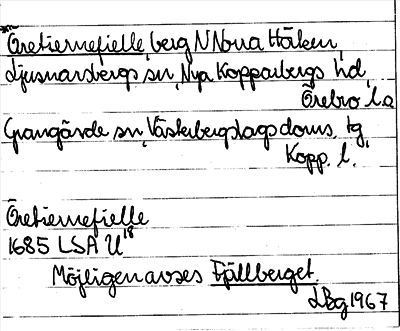 Öretiernefielle, berg N Norra Hörken,
Ljusnarsbergs sn, Nya Kopparbergs hd,
Örebro l. o
Grangärde sn, Västerbergslags doms. tg,
Kopp. l.
Öretiernefielle
1685 LSA U18
Möjligen avses Fjällberget.
LBg 1967